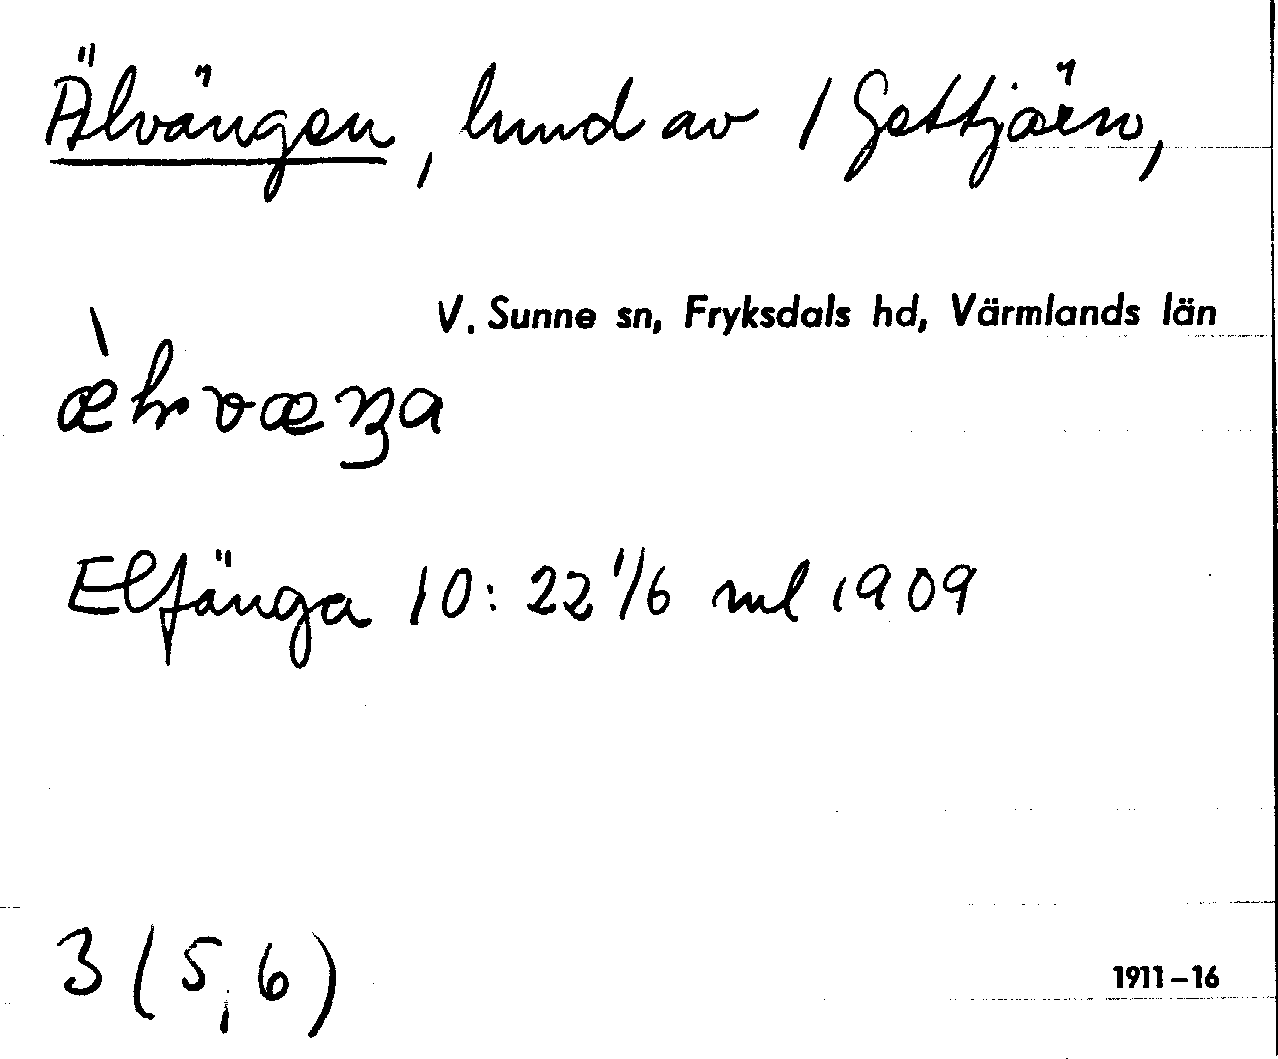 Älvängen, hmd av 1 Gettjärn,
V. Sunne sn, Fryksdals hd, Värmlands län
Elfänga 10:22 1/6 ml 1909
3 (5, 6)
1911–16